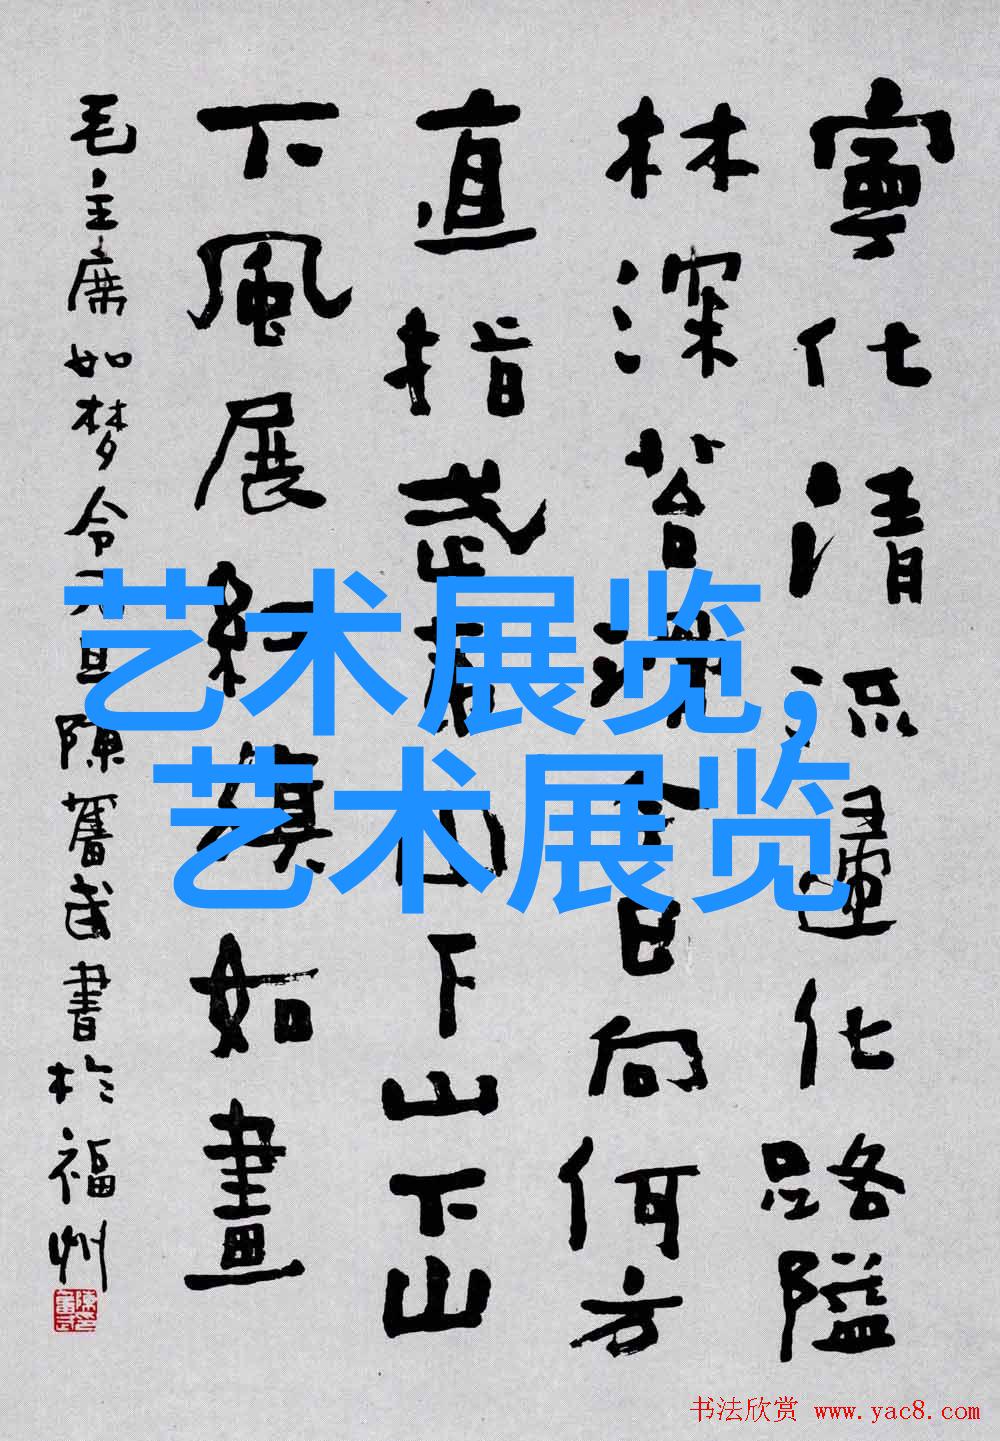 寧化清流歸化路隘
林深苔滑今日向何方
直指武夷山下山下山
下風展紅旗如畫
毛主席如梦令元旦陳奮武書於福州
艺术展览,
艺术展览
书法欣赏 www.yac8.com